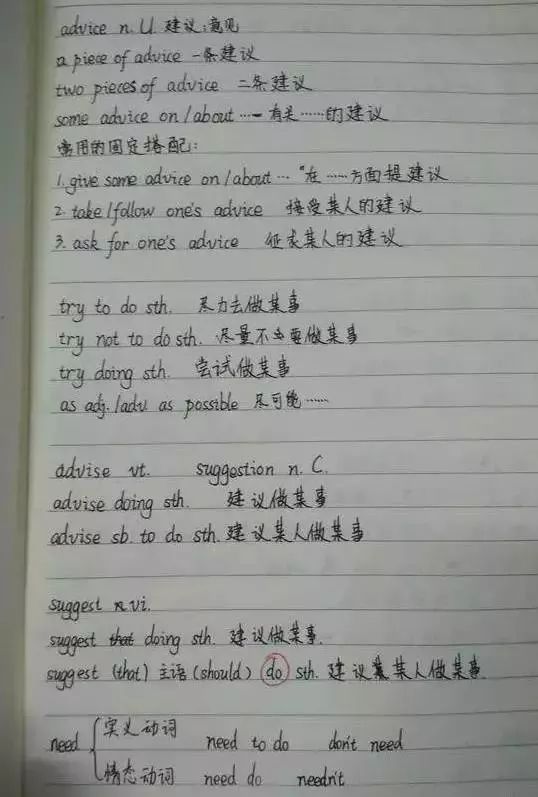 advice n. U. 建议;意见
a piece of advice 一条建议
two pieces of advice 二条建议
some advice on/about …… 有关……的建议
常用的固定搭配:
1. give some advice on/about … "在……方面提建议
2. take/follow one's advice 接受某人的建议
3. ask for one's advice 征求某人的建议
try to do sth. 尽力去做某事
try not to do sth. 尽量不要做某事
try doing sth. 尝试做某事
as adj./adv as possible 尽可能……
advise vt. suggestion n. C.
advise doing sth. 建议做某事
advise sb. to do sth. 建议某人做某事
suggest vi.
suggest that doing sth. 建议做某事.
suggest (that) 主语 (should) do sth. 建议某人做某事
need 实义动词 need to do don't need
情态动词 need do needn't